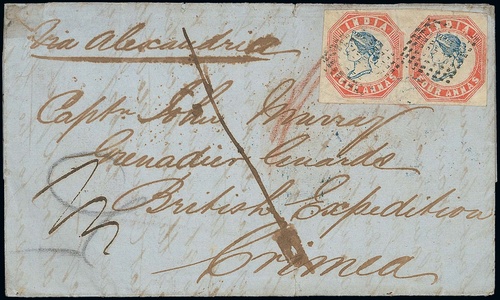 Via Alexandria
INDIA
FOUR ANNAS
INDIA
FOUR ANNAS
Captn. John Murray
Grenadier Guards
British Expedition
Crimea